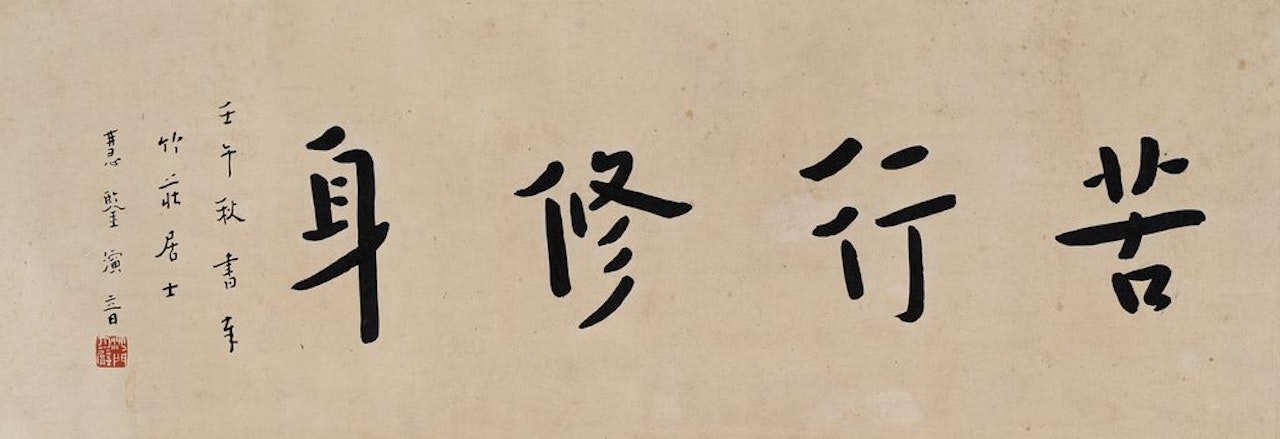 苦行修身
壬午秋書奉
竹莊居士
慧鑒演音